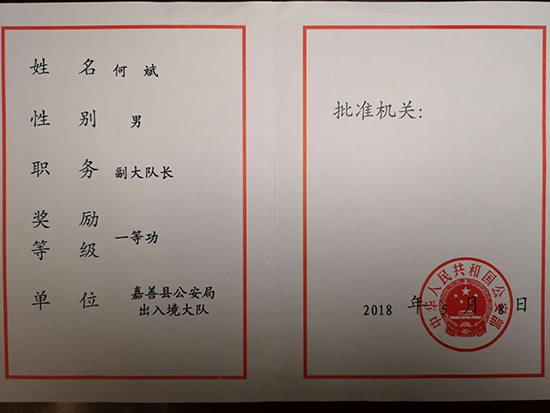 姓名 何斌
性别 男
职务 副大队长
奖励
等级 一等功
单位 嘉善县公安局
出入境大队
批准机关：
中华人民共和国公安部
2018 年 5 月 8 日